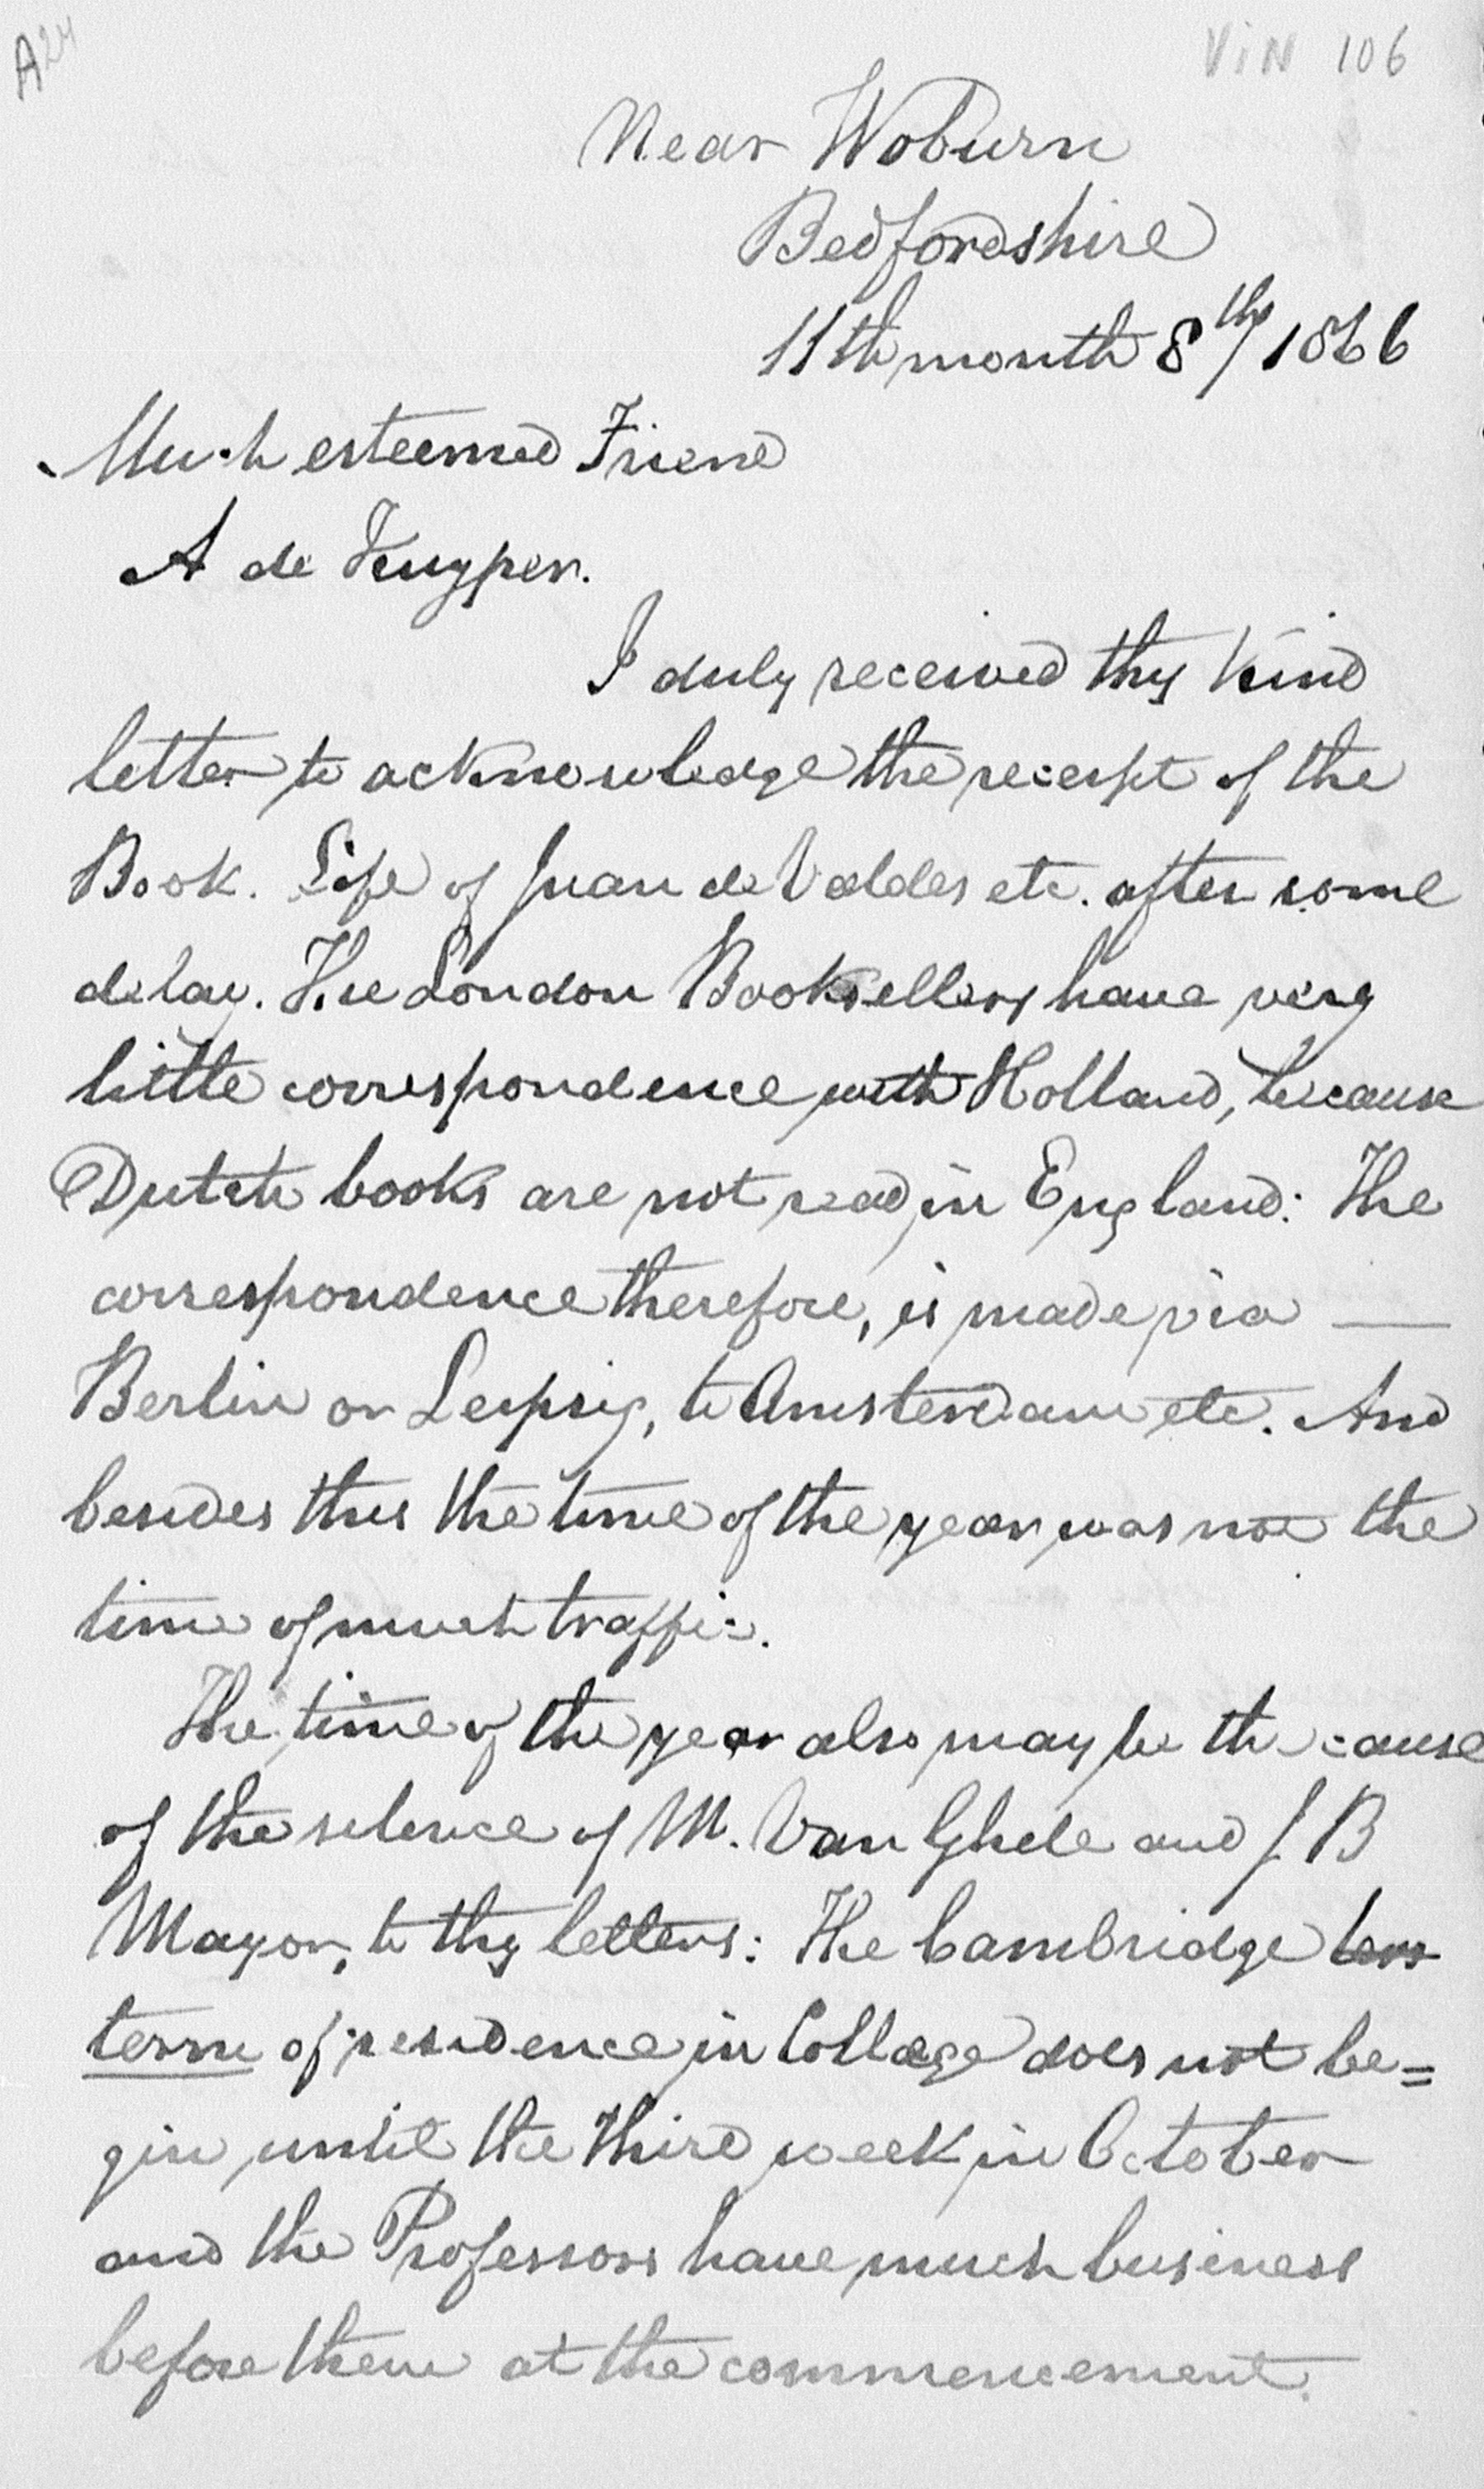 A24
VIN 106
Near Woburn
Bedfordshire
11th month 8th/1866
Much esteemed Friend
A de Kuyper.
I duly received thy kind
letter to acknowledge the receipt of the
Book. Life of Juan de Valdes etc. after some
delay. The London Booksellers have very
little correspondence with Holland, because
Dutch books are not read in England: The
correspondence therefore, is made via —
Berlin or Leipsig, to Amsterdam etc. And
besides this the time of the year was not the
time of much traffic.
The time of the year also may be the cause
of the silence of M. Van Ghele and J B
Mayor, to thy letters: The Cambridge
term of residence in College does not be=
gin until the Third week in October
and the Professors have much business
before them at the commencement.